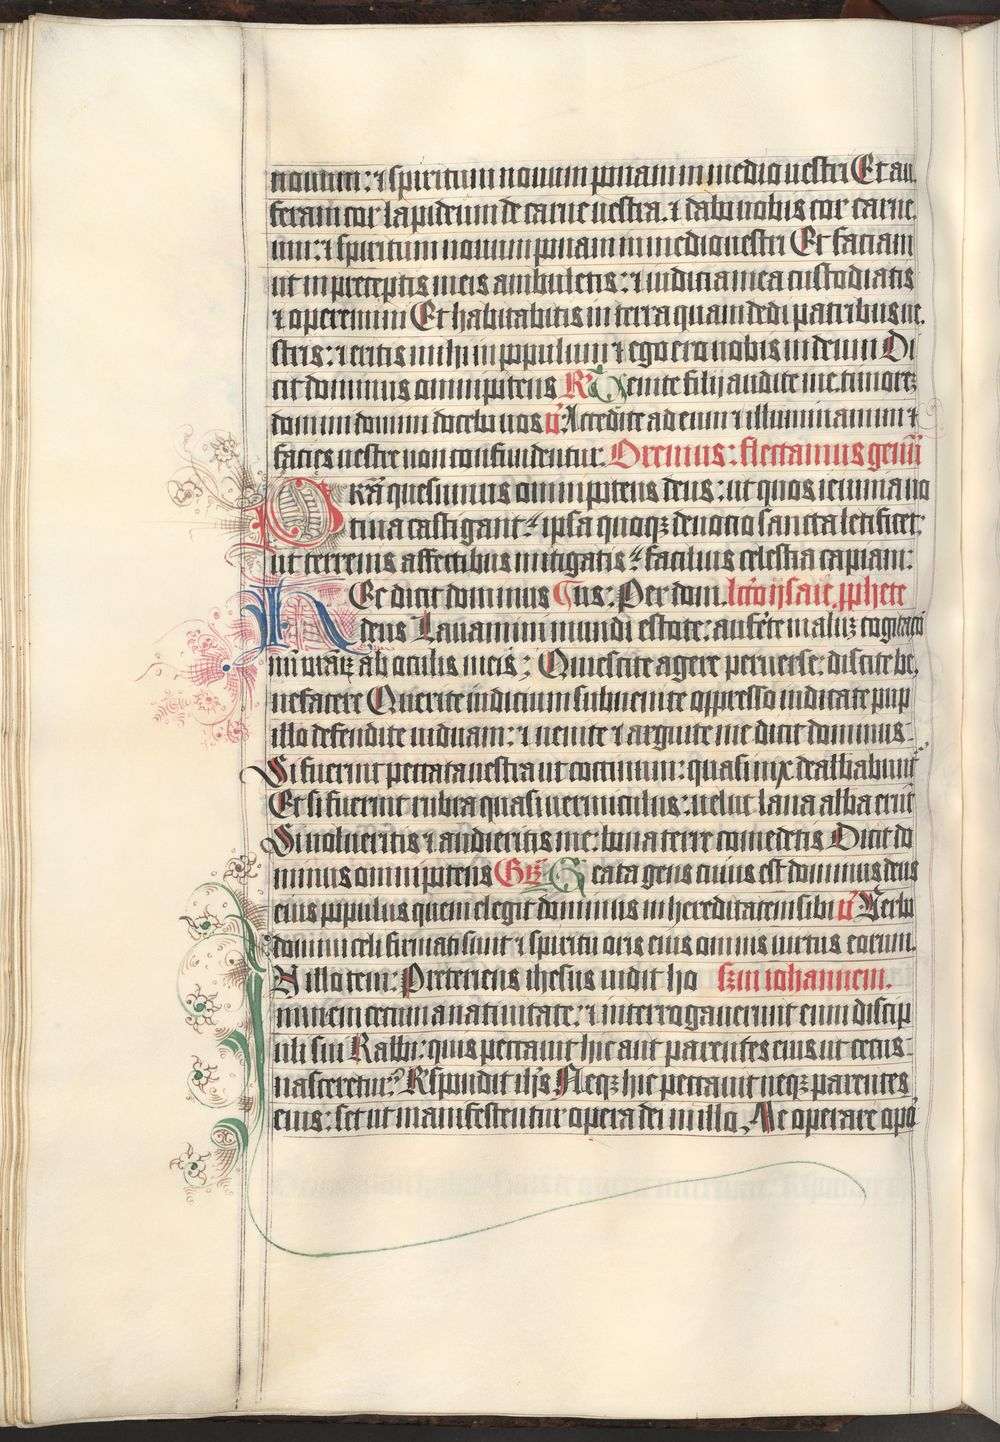 nouum: ⁊ spiritum nouum ponam in medio uestri Et au
feram cor lapideum de carne uestra. ⁊ dabo uobis cor carne
um: ⁊ spiritum nouum ponam in medio uestri Et faciam
ut in preceptis meis ambuletis: ⁊ iudicia mea custodiatis
⁊ operemini Et habitabitis in terra quam dedi patribus ue
stris: ⁊ eritis mihi in populum ⁊ ego ero uobis in deum Di
cit dominus omnipotens R Uenite filij audite me timorez
domini domini docebo uos ℣ Accedite ad eum ⁊ illuminamini ⁊
facies uestre non confundentur. Oremus: flectamus genua
Presta quesumus omnipotens deus: ut quos ieiunia uo
tiua castigant: ipsa quoqz deuotio sancta letificet:
ut terrenis affectibus mitigatis: facilius celestia capiam:
Hec dicit dominus deus: Per dom. lcto ysaie pphete
Lauamini mundi estote: auferte maluz cogitatio
nu uraz ab oculis meis; Quiescite agere peruerse: discite be
nefacere Querite iudicium subuenite oppresso iudicate pup
illo defendite uiduam: ⁊ uenite ⁊ arguite me dicit dominus
Si fuerint peccata uestra ut coccinum: quasi nix dealbabunt
Et si fuerint rubra quasi uermiculus: uelut lana alba erunt
Si uolueritis ⁊ audieritis me: bona terre comedetis Dicit do
minus omnipotens Beata gens cuius est dominus deus
eius populus quem elegit dominus in hereditatem sibi ℣ Uerbo
domini celi firmati sunt ⁊ spiritu oris eius omnis uirtus eorum.
In illo tem: Preteriens ihesus uidit ho scdm iohannem.
minem cecum a natiuitate: ⁊ interrogauerunt eum discip
uli sui Rabbi: quis peccauit hic aut parentes eius ut cecus
nasceretur? Rspondit ihs Neqz hic peccauit neqz parentes
eius: set ut manifestentur opera dei in illo. Me operare opo